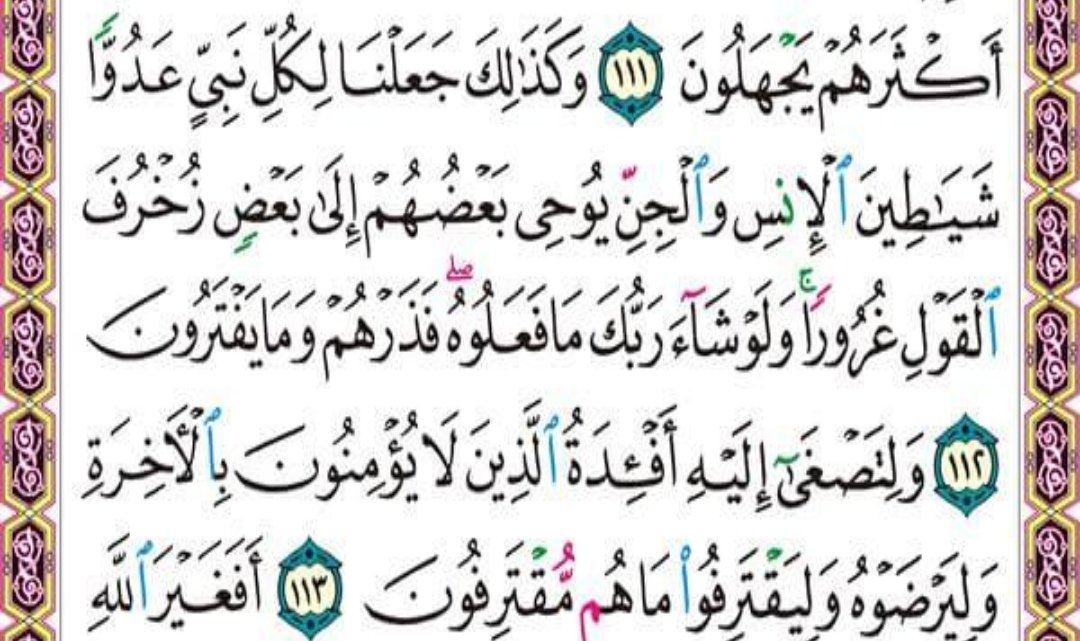 أَكۡثَرَهُمۡ يَجۡهَلُونَ ١١١ وَكَذَٰلِكَ جَعَلۡنَا لِكُلِّ نَبِيٍّ عَدُوّٗا
شَيَٰطِينَ ٱلۡإِنسِ وَٱلۡجِنِّ يُوحِي بَعۡضُهُمۡ إِلَىٰ بَعۡضٖ زُخۡرُفَ
ٱلۡقَوۡلِ غُرُورٗاۚ وَلَوۡ شَآءَ رَبُّكَ مَا فَعَلُوهُۖ فَذَرۡهُمۡ وَمَا يَفۡتَرُونَ
١١٢ وَلِتَصۡغَىٰٓ إِلَيۡهِ أَفۡـِٔدَةُ ٱلَّذِينَ لَا يُؤۡمِنُونَ بِٱلۡأٓخِرَةِ
وَلِيَرۡضَوۡهُ وَلِيَقۡتَرِفُواْ مَا هُم مُّقۡتَرِفُونَ ١١٣ أَفَغَيۡرَ ٱللَّهِ